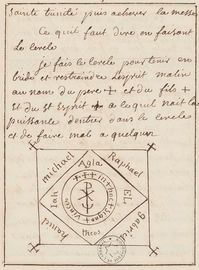 Sancte trinité puis achever la messe
Ce qu'il faut dire en faisant
Le cercle
Je fais le cercle pour tenir en
bride et restraindre Lesprit malin
au nom du pere + et du fils +
et du St Esprit + a le quel nait la
puissante dentrer dans le cercle
et de faire mal a quelqun
michael
Raphael
Agla
EL
gabriel
haniel
theos
Iah
in hoc signo vinces